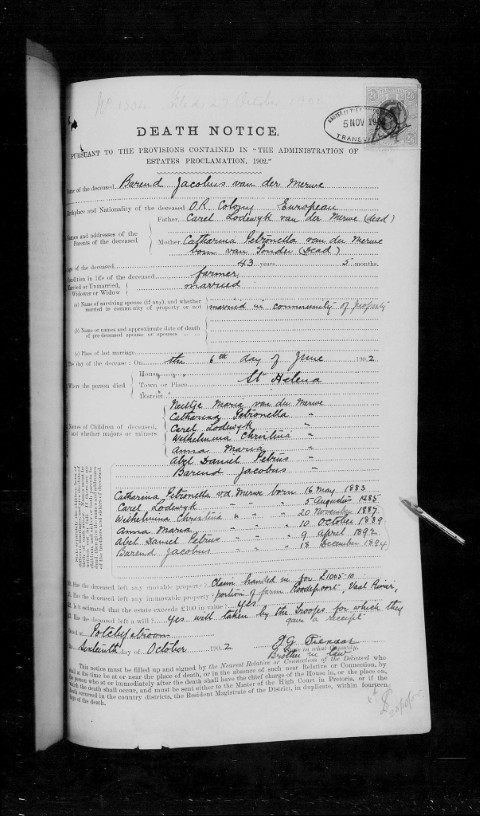 5 NOV 19
TRANSV
DEATH NOTICE.
PURSUANT TO THE PROVISIONS CONTAINED IN "THE ADMINISTRATION OF
ESTATES PROCLAMATION, 1902."
Name of the deceased Barend Jacobus van der Merwe
Birthplace and Nationality of the deceased O.R. Colony European
Names and addresses of the Parents of the deceased
Father, Carel Lodewyk van der Merwe (dead)
Mother, Catharina Petronella van der Merwe
born van Tonder (dead)
Age of the deceased 43 years 5 months.
Condition in life of the deceased farmer
Married or Unmarried, Widower or Widow married
(a) Name of surviving spouse (if any), and whether married in community of property or not married in community of property
(b) Name or names and approximate date of death of pre-deceased spouse or spouses
(c) Place of last marriage
The day of the decease: On the 6th day of June 1902
Where the person died
House
Town or Place St Helena
District
Names of Children of deceased, and whether majors or minors
Neeltje Maria van der Merwe
Catharina Petronella "
Carel Lodewyk "
Wilhelmina Christina "
Anna Maria "
Abel Daniel Petrus "
Barend Jacobus "
Catharina Petronella v.d. Merwe born 16 May 1883
Carel Lodewyk " " " 5 Augustus 1885
Wilhelmina Christina " " " 20 November 1887
Anna Maria " " " 10 October 1889
Abel Daniel Petrus " " " 9 April 1892
Barend Jacobus " " " 18 December 1894
Has the deceased left any movable property? Claim handed in for £1095-10
Has the deceased left any immovable property? portion of farm Roodepoort, Vaal River,
Is it estimated that the estate exceeds £100 in value? Yes
Has the deceased left a will? yes will taken by the Troops for which they
gave a receipt
Dated at Potchefstroom
the sixteenth day of October 1902
J G Pienaar
Brother in law
This notice must be filled up and signed by the Nearest Relative or Connection of the Deceased who
shall at the time be at or near the place of death, or in the absence of such near Relative or Connection, by
the person who at or immediately after the death shall have the chief charge of the House in, or the place on,
which the death shall occur, and must be sent either to the Master of the High Court in Pretoria, or if the
death occurred in the country districts, the Resident Magistrate of the District, in duplicate, within fourteen
days of the death.